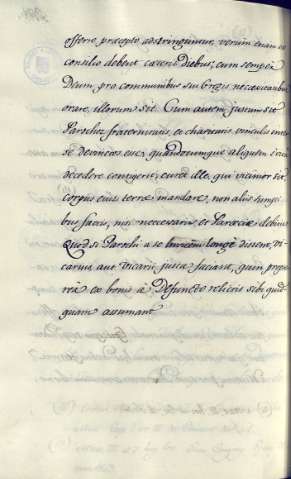 offerre præcepto adstringuntur, verum etiam ex
consilio debent cæteris diebus, cum semper
Deum, pro communibus suæ Gregis necessitatibus
orare, illorum sit. Cum autem justum sit
Parochos fraternitatis, et charitatis vinculis inter
se devinctos esse, quandocumque aliquem i vita
decedere contigerit, curet ille, qui vicinior sit
corpus ejus terræ mandare, non aliis sumpti
bus factis, nisi necessariis, et Paræciæ debitis
Quod si Parochi a se invicem longè distent, Vi
carius aut Vicarii justa faciant, quin propte
rea ex bonis a Defuncto relictis sibi quid
quam assumant